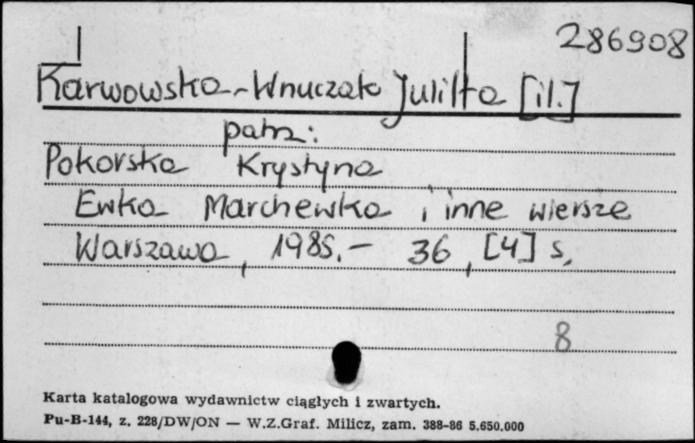 286908
Karwowska-Wnuczak Julitta [il.]
patrz:
Pokorska Krystyna
Ewka Marchewka i inne wiersze
Warszawa, 1985.- 36, [4] s.
8
Karta katalogowa wydawnictw ciągłych i zwartych.
Pu-B-144, z. 228/DW/ON — W.Z.Graf. Milicz, zam. 388-86 5.650.000